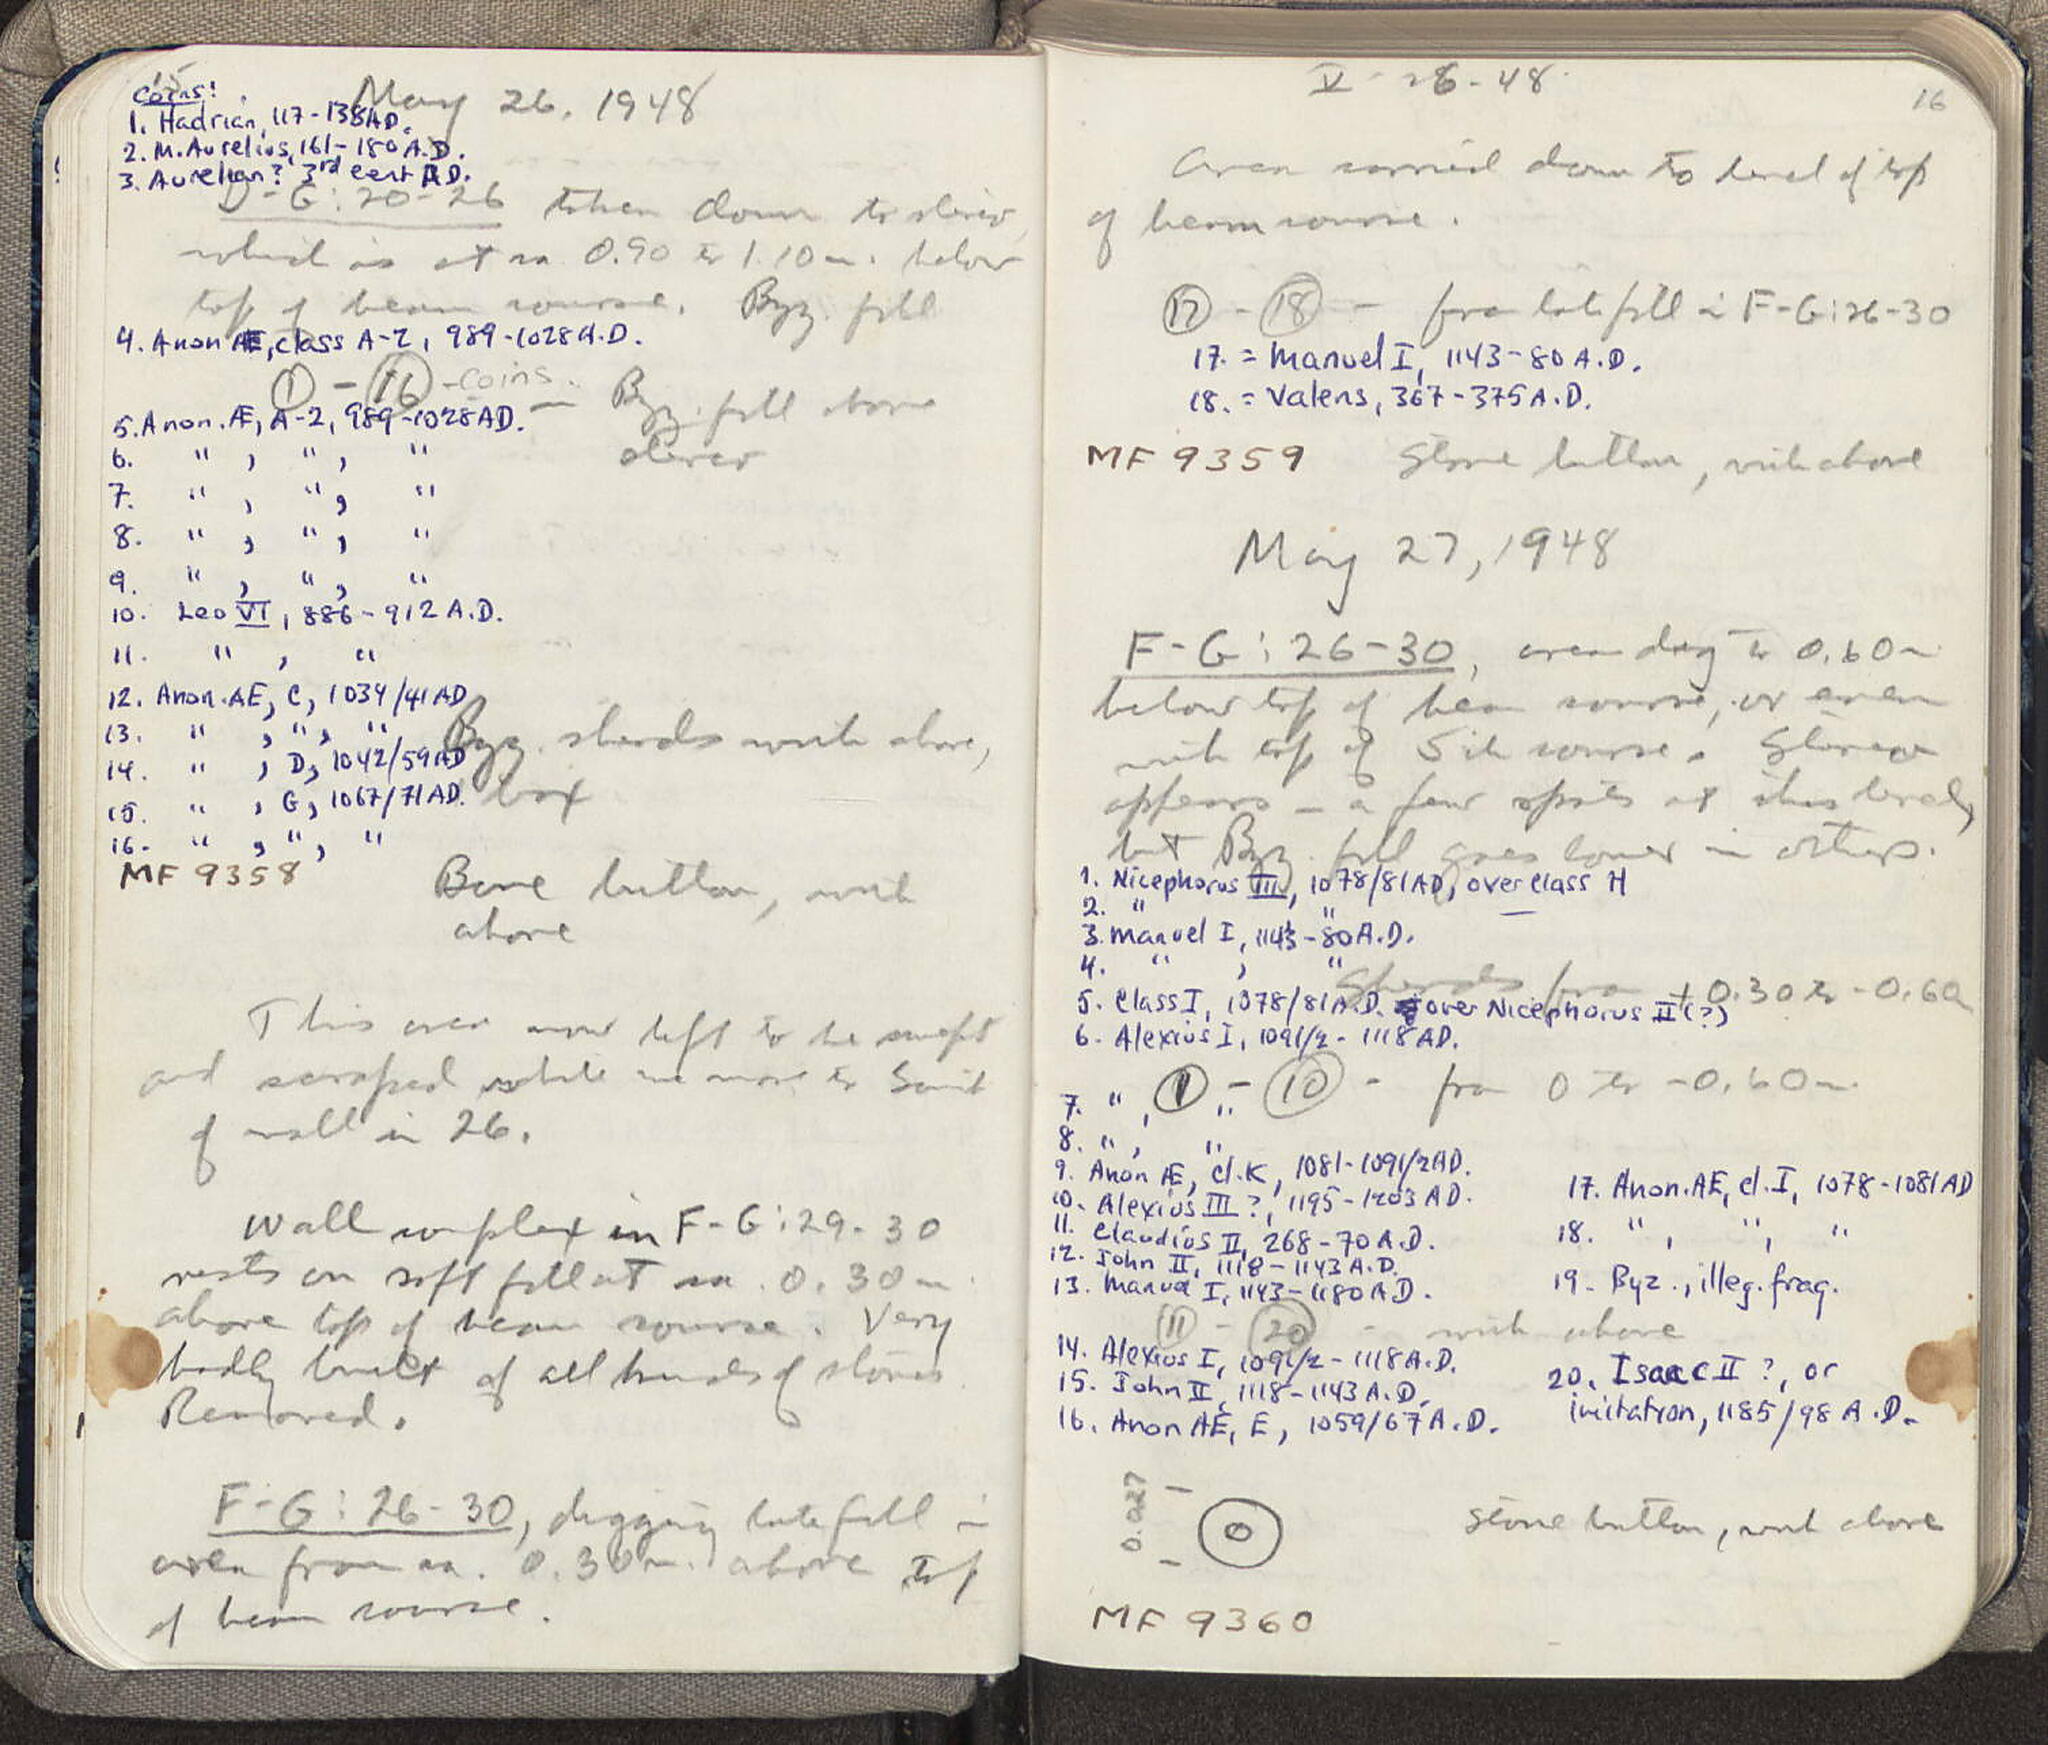 15
Coins!
May 26, 1948
1. Hadrian, 117-138 AD.
2. M. Aurelius, 161-180 A.D.
3. Aurelian? 3rd cent A.D.
D-G:20-26 taken down to stereo
which is at ca 0.90 to 1.10 m. below
top of beam course. Byz. fill
4. Anon Æ, class A-2, 989-1028 A.D.
① - ⑯ - coins. - Byz. fill above
stereo
5. Anon. Æ, A-2, 989-1028 AD.
6. " , " , "
7. " , " , "
8. " , " , "
9. " , " , "
10. Leo VI, 886-912 A.D.
11. " , "
12. Anon. AE, C, 1034/41 AD
13. " , " , "
14. " , D, 1042/59 AD
15. " , G, 1067/71 AD.
16. " , " , "
Byz. sherds with above,
box
MF 9358 Bone button, with
above
This area now left to be swept
and scraped while we move to South
of wall in 26.
Wall complex in F-G:29-30
rests on soft fill at ca. 0.30 m.
above top of beam course. Very
badly built of all kinds of stones
Removed.
F-G:26-30, digging late fill in
area from ca. 0.30 m. above top
of beam course.
V-26-48
16
Area carried down to level of top
of beam course.
⑰ - ⑱ - from late fill in F-G:26-30
17. = Manuel I, 1143-80 A.D.
18. = Valens, 367-375 A.D.
MF 9359 Stone button, with above
May 27, 1948
F-G:26-30, area dug to 0.60 m
below top of beam course, or even
with top of 5th course. Stereo
appears in a few spots at this level,
but Byz. fill goes lower in others.
1. Nicephorus III, 1078/81 AD, over class H
2. " "
3. Manuel I, 1143-80 A.D.
4. " , "
Sherds from +0.30 to -0.60
5. Class I, 1078/81 A.D. over Nicephorus II (?)
6. Alexius I, 1091/2-1118 AD.
① - ⑩ - from 0 to -0.60 m.
7. " , "
8. " , "
9. Anon Æ, cl. K, 1081-1091/2 AD.
10. Alexius III ?, 1195-1203 AD.
11. Claudius II, 268-70 A.D.
12. John II, 1118-1143 A.D.
13. Manuel I, 1143-1180 A.D.
17. Anon. AE, cl. I, 1078-1081 AD
18. " , " , "
19. Byz., illeg. frag.
⑪ - ⑳ - with above
14. Alexius I, 1091/2-1118 A.D.
15. John II, 1118-1143 A.D.
16. Anon AE, E, 1059/67 A.D.
20. Isaac II ?, or
imitation, 1185/98 A.D.
0.027
Stone button, with above
MF 9360